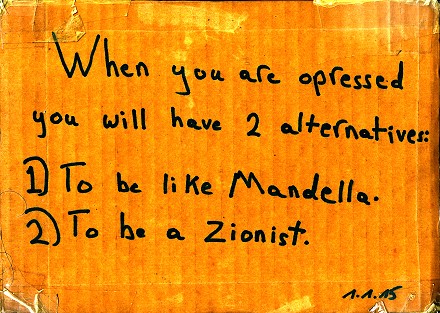 When you are opressed
you will have 2 alternatives:
1) To be like Mandella.
2) To be a Zionist.
1.1.15